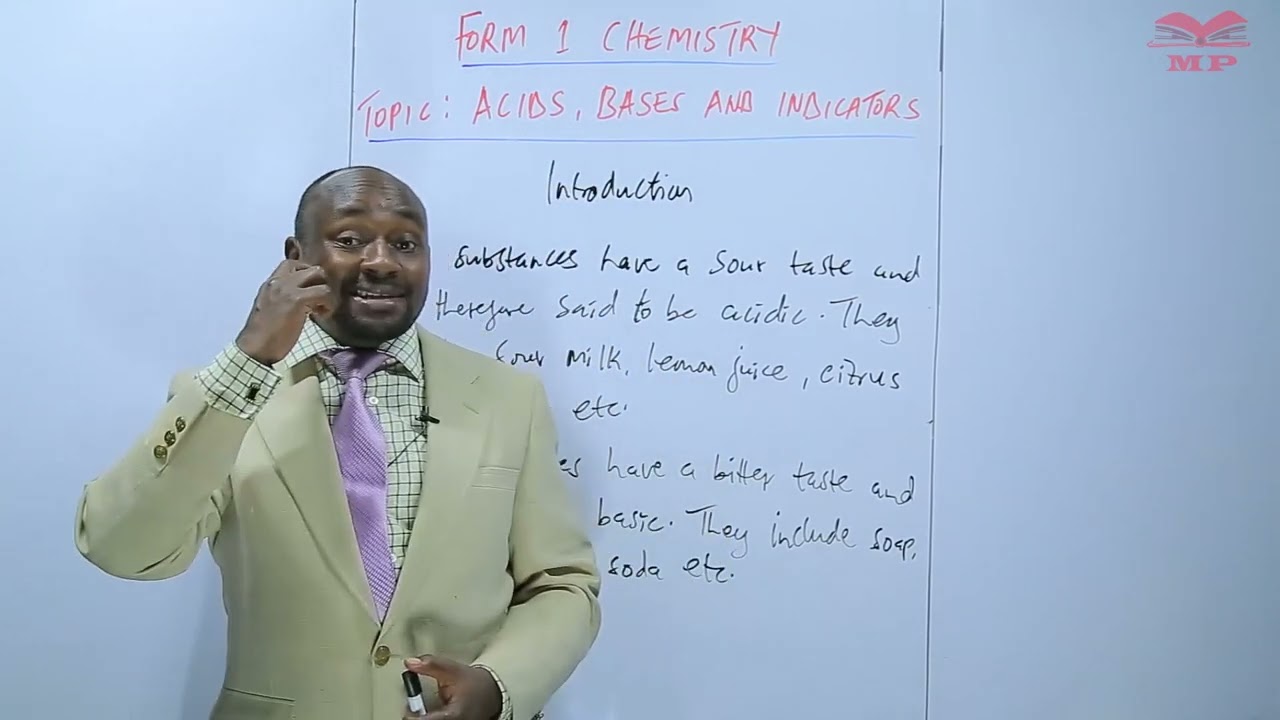 FORM 1 CHEMISTRY
TOPIC: ACIDS, BASES AND INDICATORS
Introduction
substances have a sour taste and
therefore said to be acidic. They
sour milk, lemon juice, citrus
etc.
es have a bitter taste and
basic. They include soap,
soda etc.
MP